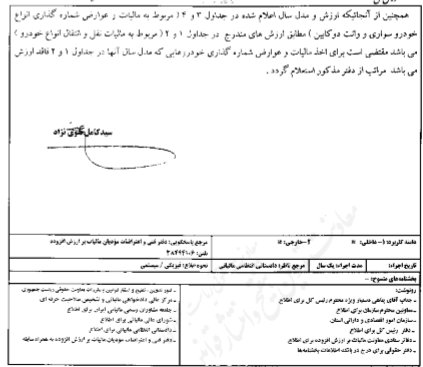 همچنین از آنجائیکه ارزش و مدل سال اعلام شده در جداول ۳ و ۴ ( مربوط به مالیات و عوارض شماره گذاری انواع
خودرو سواری و وانت دوکابین ) مطابق ارزش های مندرج در جداول ۱ و ۲ ( مربوط به مالیات نقل و انتقال انواع خودرو )
می باشد مقتضی است برای اخذ مالیات و عوارض شماره گذاری خودروهایی که مدل سال آنها در جداول ۱ و ۲ فاقد ارزش
می باشد مراتب از دفتر مذکور استعلام گردد .
دامنه کاربرد: ۱- داخلی:
۲- خارجی:
مرجع پاسخگویی: دفتر فنی و اعتراضات مؤدیان مالیات بر ارزش افزوده
تلفن:
تاریخ اجراء:
مدت اجراء: یک سال
مرجع ناظر: دادستانی انتظامی مالیاتی
نحوه ابلاغ: فیزیکی / سیستمی
بخشنامه‌های منسوخ: -
رونوشت:
- جناب آقای پناهی دستیار ویژه محترم رئیس کل برای اطلاع
- معاونین محترم سازمان برای اطلاع
- سازمان امور اقتصادی و دارائی استان
- دفتر رئیس کل برای اطلاع
- دفاتر ستادی معاونت مالیات بر ارزش افزوده برای اطلاع
- دفتر حقوقی برای درج در بانک اطلاعات بخشنامه‌ها
- مرکز عالی دادخواهی مالیاتی و تشخیص صلاحیت حرفه ای
- جامعه مشاوران رسمی مالیاتی ایران برای اطلاع
- شورای عالی مالیاتی برای اطلاع
- دادستانی انتظامی مالیاتی برای اطلاع
- دفتر فنی و اعتراضات مؤدیان مالیات بر ارزش افزوده به همراه سابقه